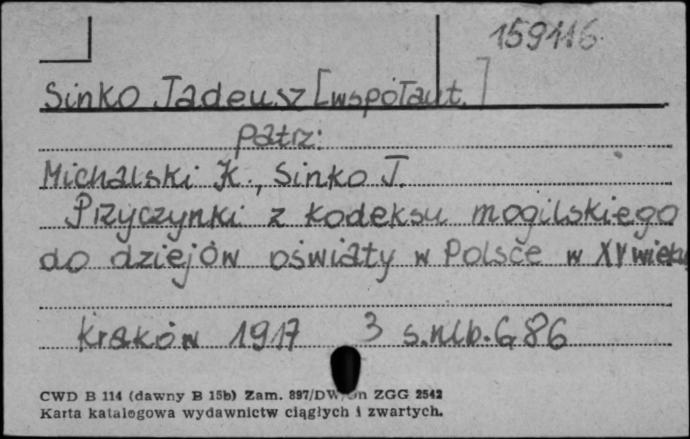 159116
Sinko Tadeusz [współaut.]
patrz:
Michalski K., Sinko T.
Przyczynki z kodeksu mogilskiego
do dziejów oświaty w Polsce w XV wieku
Kraków 1917 3 s. nlb. 686
CWD B 114 (dawny B 15b) Zam. 897/DW/Gn ZGG 2542
Karta katalogowa wydawnictw ciągłych i zwartych.